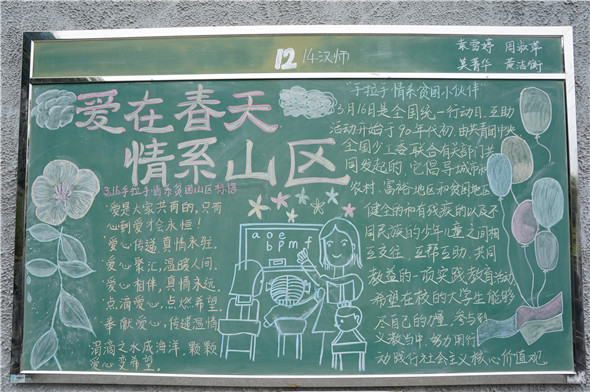 12 14汉师
袁雪婷 周淑苹
吴菁华 黄洁衡
爱在春天
情系山区
3.16手拉手情系贫困山区标语
·爱是大家共有的,只有
心到爱才会永恒!
·爱心传递,真情永驻.
·爱心聚汇,温暖人间.
·爱心相伴,真情永远.
·点滴爱心,点燃希望.
·奉献爱心,传递温情
涓滴之水成海洋,颗颗
爱心变希望.
a o e
b p m f
"手拉手"情系贫困小伙伴"
3月16日是全国统一行动日.互助
活动开始于90年代初,由共青团中央、
全国少工委联合有关部门共
同发起的,它倡导城市和
农村、富裕地区和贫困地区
健全的和有残疾的以及不
同民族的少年儿童之间相
互交往、互帮互助、共同
教益的一项实践教育活动.
希望在校的大学生能够
尽自己的力量,参与到
义教当中,努力用行
动践行社会主义核心价值观.